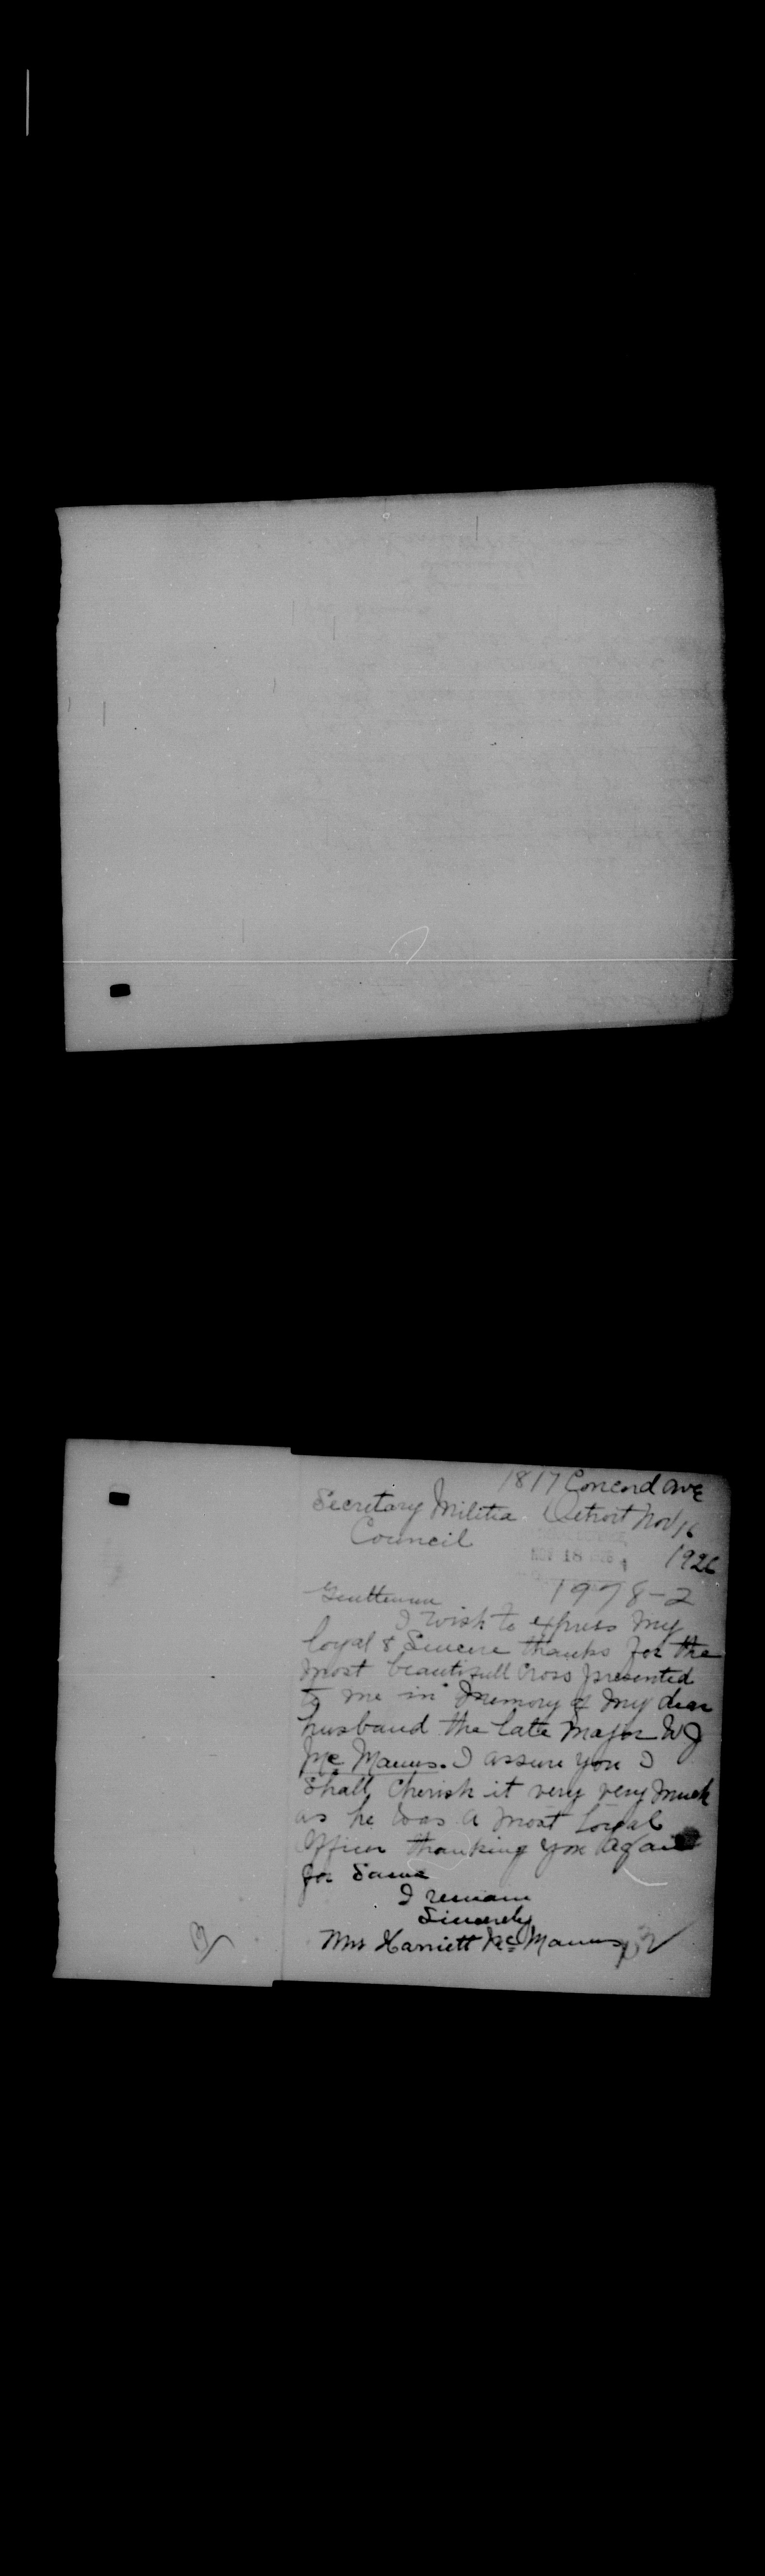 1817 Concord ave
Secretary Militia Detroit Nov 16
Council 1926
NOV 18 1926
1978-2
Genttemen
I wish to express my
loyal & Sincere thanks for the
most beautifull Cross presented
to me in memory of my dear
husband the late Major WJ
McManus. I assure you I
Shall Cherish it very very much
as he was a most loyal
Officer thanking you again
for Same
I remain
Sincerely
Mrs Harriett McManus